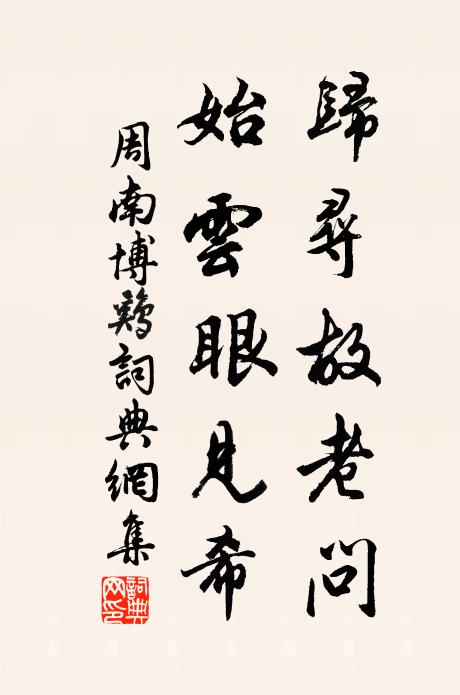 歸尋故老問
始雲眼見希
周南博鷄詞典網集
詞典網印